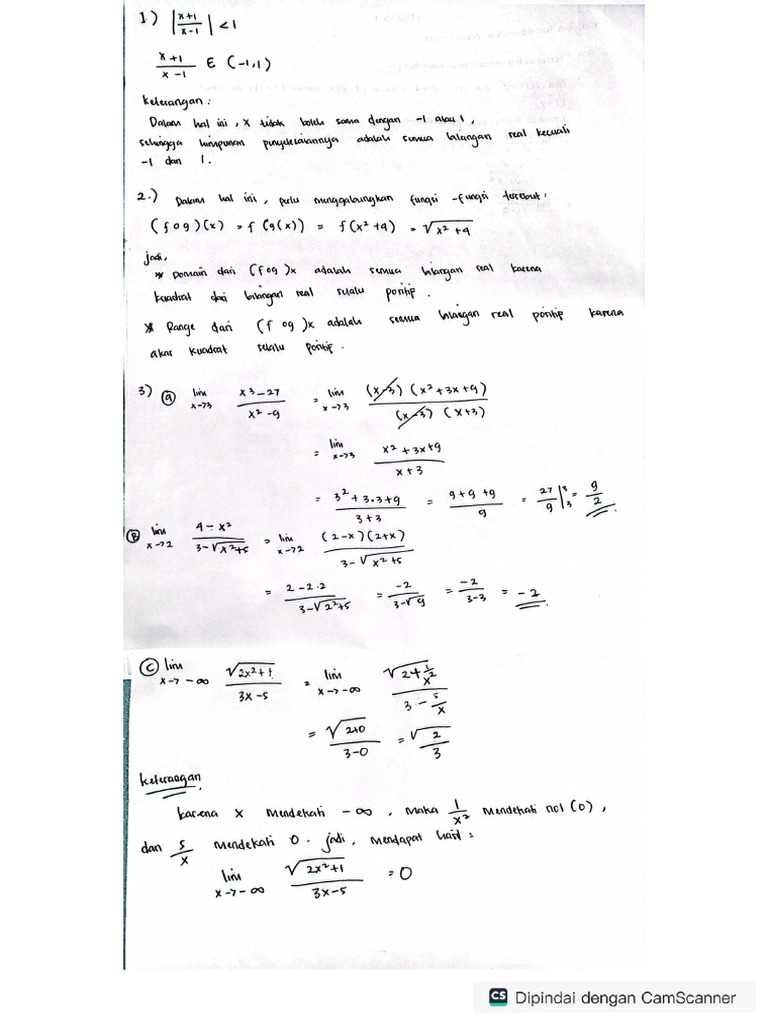 1) |x+1/x-1| < 1
x+1/x-1 ∈ (-1,1)
keterangan:
Dalam hal ini, x tidak boleh sama dengan -1 atau 1,
sehingga himpunan penyelesaiannya adalah semua bilangan real kecuali
-1 dan 1.
2.) Dalam hal ini, perlu menggabungkan fungsi-fungsi tersebut.
(f o g)(x) = f(g(x)) = f(x²+4) = √x²+4
jadi,
* Domain dari (f o g)x adalah semua bilangan real karena
kuadrat dari bilangan real selalu positip.
* Range dari (f o g)x adalah semua bilangan real positip karena
akar kuadrat selalu positip.
3) (a) lim x→3 x3-27/x²-9 = lim x→3 (x-3)(x²+3x+9)/(x-3)(x+3)
= lim x→3 x²+3x+9/x+3
= 3²+3.3+9/3+3 = 9+9+9/9 = 27/9|3 3 = 9/2
(B) lim x→2 4-x²/3-√x²+5 = lim x→2 (2-x)(2+x)/3-√x²+5
= 2-2.2/3-√2²+5 = -2/3-√9 = -2/3-3 = -2
(C) lim x→-∞ √2x²+1/3x-5 = lim x→-∞ √2+1/x²/3-5/x
= √2+0/3-0 = √2/3
keterangan
karena x mendekati -∞, maka 1/x² mendekati nol (0),
dan 5/x mendekati 0. jadi, mendapat hasil:
lim x→-∞ √2x²+1/3x-5 = 0
CS Dipindai dengan CamScanner